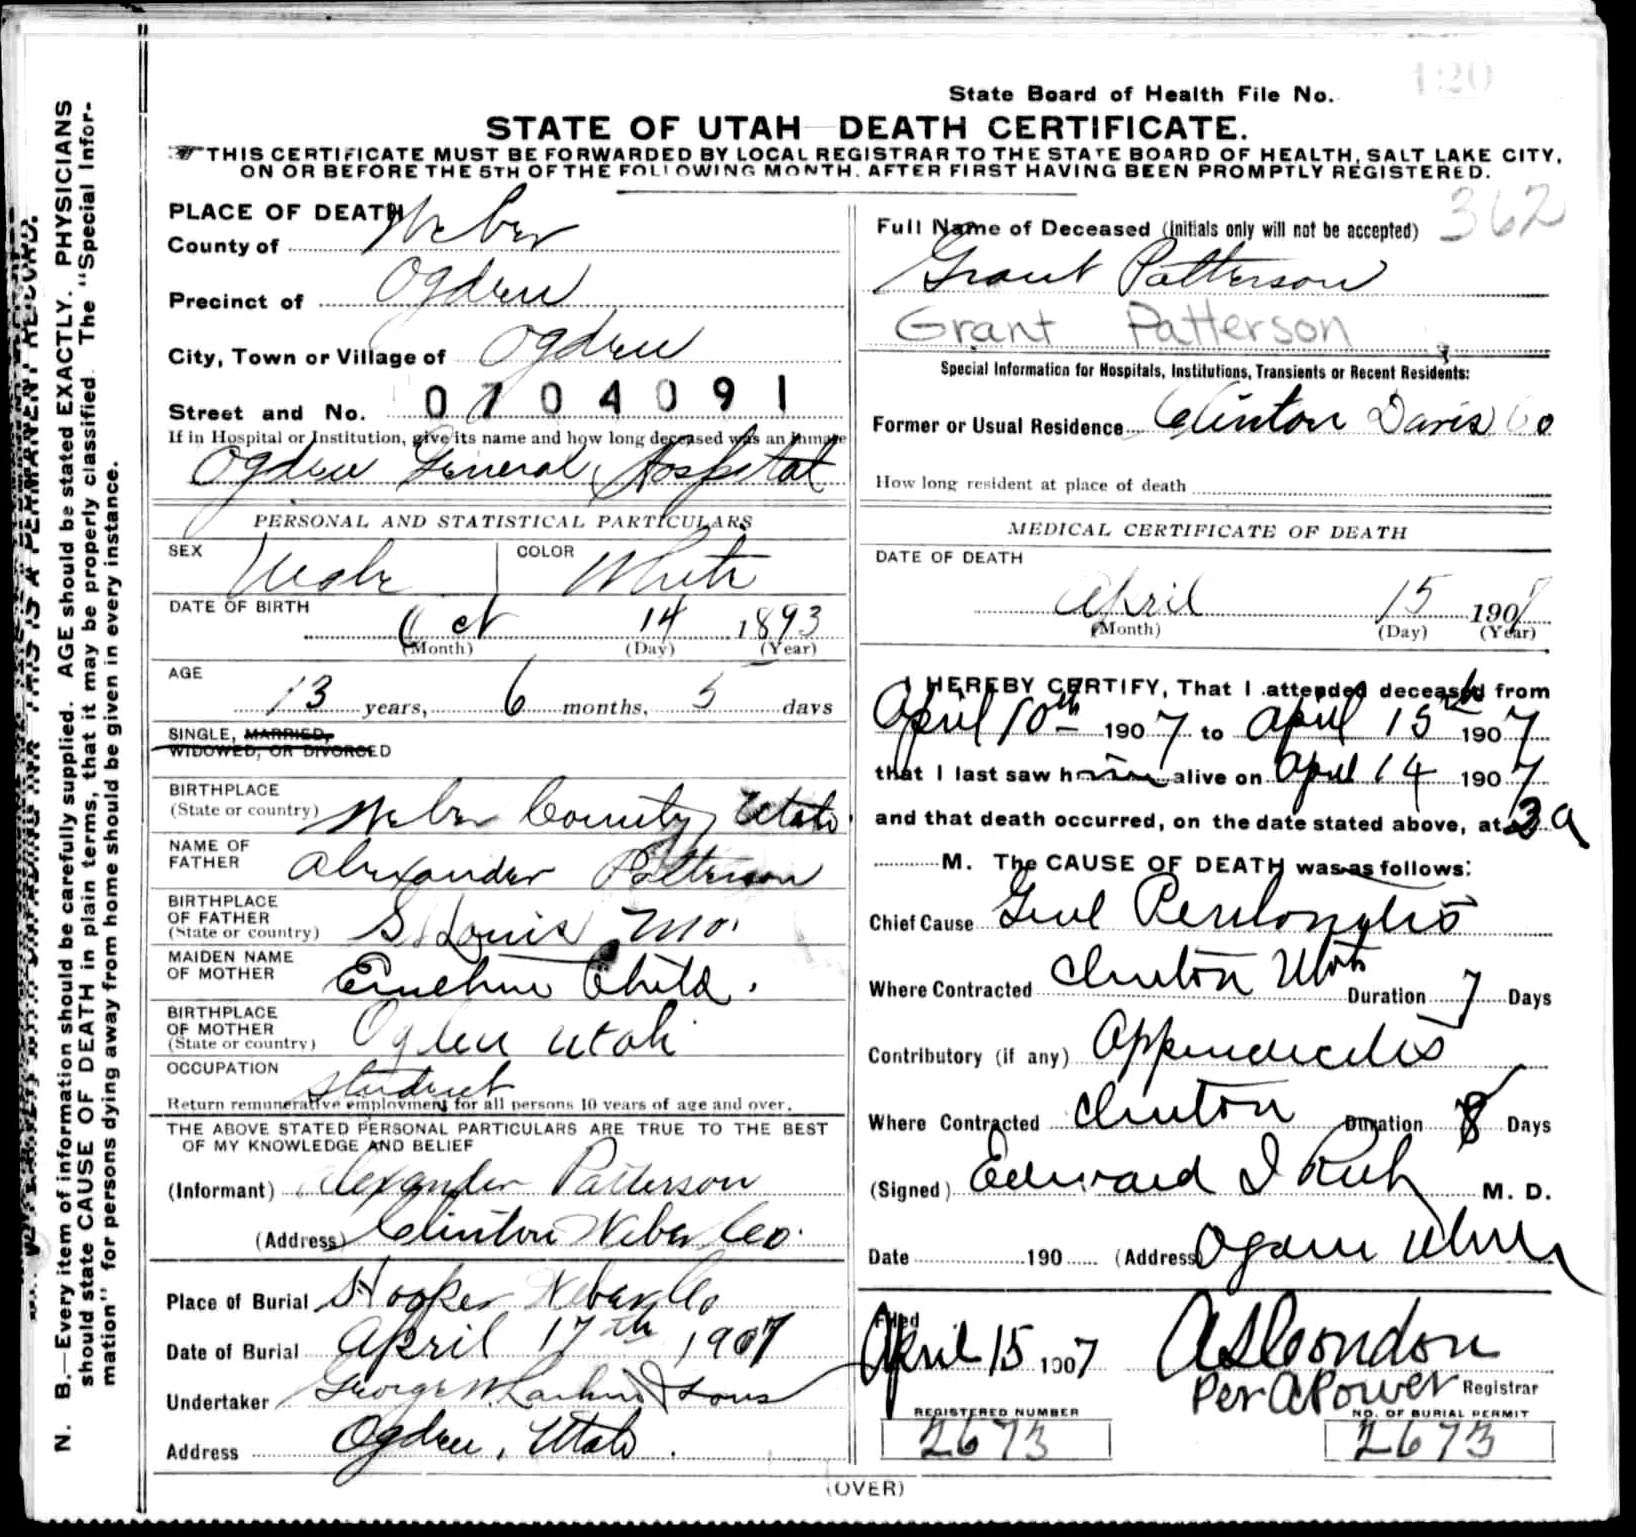 State Board of Health File No. 120
STATE OF UTAH DEATH CERTIFICATE.
THIS CERTIFICATE MUST BE FORWARDED BY LOCAL REGISTRAR TO THE STATE BOARD OF HEALTH, SALT LAKE CITY,
ON OR BEFORE THE 5TH OF THE FOLLOWING MONTH. AFTER FIRST HAVING BEEN PROMPTLY REGISTERED.
PLACE OF DEATH
County of Weber
Precinct of Ogden
City, Town or Village of Ogden
Street and No. 0704091
If in Hospital or Institution, give its name and how long deceased was an inmate
Ogden General Hospital
PERSONAL AND STATISTICAL PARTICULARS
SEX Male COLOR White
DATE OF BIRTH
Oct 14 1893
(Month) (Day) (Year)
AGE
13 years, 6 months, 5 days
SINGLE, MARRIED,
WIDOWED, OR DIVORCED
BIRTHPLACE
(State or country) Weber County Utah
NAME OF
FATHER Alexander Patterson
BIRTHPLACE
OF FATHER
(State or country) St Louis Mo.
MAIDEN NAME
OF MOTHER Child.
BIRTHPLACE
OF MOTHER
(State or country) Ogden Utah
OCCUPATION
Student
Return remunerative employment for all persons 10 years of age and over.
THE ABOVE STATED PERSONAL PARTICULARS ARE TRUE TO THE BEST
OF MY KNOWLEDGE AND BELIEF
(Informant) Alexander Patterson
(Address) Clinton Weber Co.
Place of Burial Hooper Weber Co
Date of Burial April 17th 1907
Undertaker George W Larkin & Sons
Address Ogden, Utah.
362
Full Name of Deceased (Initials only will not be accepted)
Grant Patterson
Grant Patterson
Special Information for Hospitals, Institutions, Transients or Recent Residents:
Former or Usual Residence Clinton Davis Co
How long resident at place of death
MEDICAL CERTIFICATE OF DEATH
DATE OF DEATH
April 15 1907
(Month) (Day) (Year)
I HEREBY CERTIFY, That I attended deceased from
April 10th 1907 to April 15th 1907
that I last saw him alive on April 14 1907
and that death occurred, on the date stated above, at 3 a
M. The CAUSE OF DEATH was as follows:
Chief Cause Genl Peritonitis
Where Contracted Clinton Utah Duration 7 Days
Contributory (if any) Appendicitis
Where Contracted Clinton Duration 8 Days
(Signed) Edward I Rich M. D.
Date 190 (Address) Ogden Utah
Filed
April 15 1907 A S Condon
Per A Power Registrar
REGISTERED NUMBER NO. OF BURIAL PERMIT
2673 2673
(OVER)
N. B.—Every item of information should be carefully supplied. AGE should be stated EXACTLY. PHYSICIANS
should state CAUSE OF DEATH in plain terms, that it may be properly classified. The "Special Infor-
mation" for persons dying away from home should be given in every instance.
THIS IS A PERMANENT RECORD.